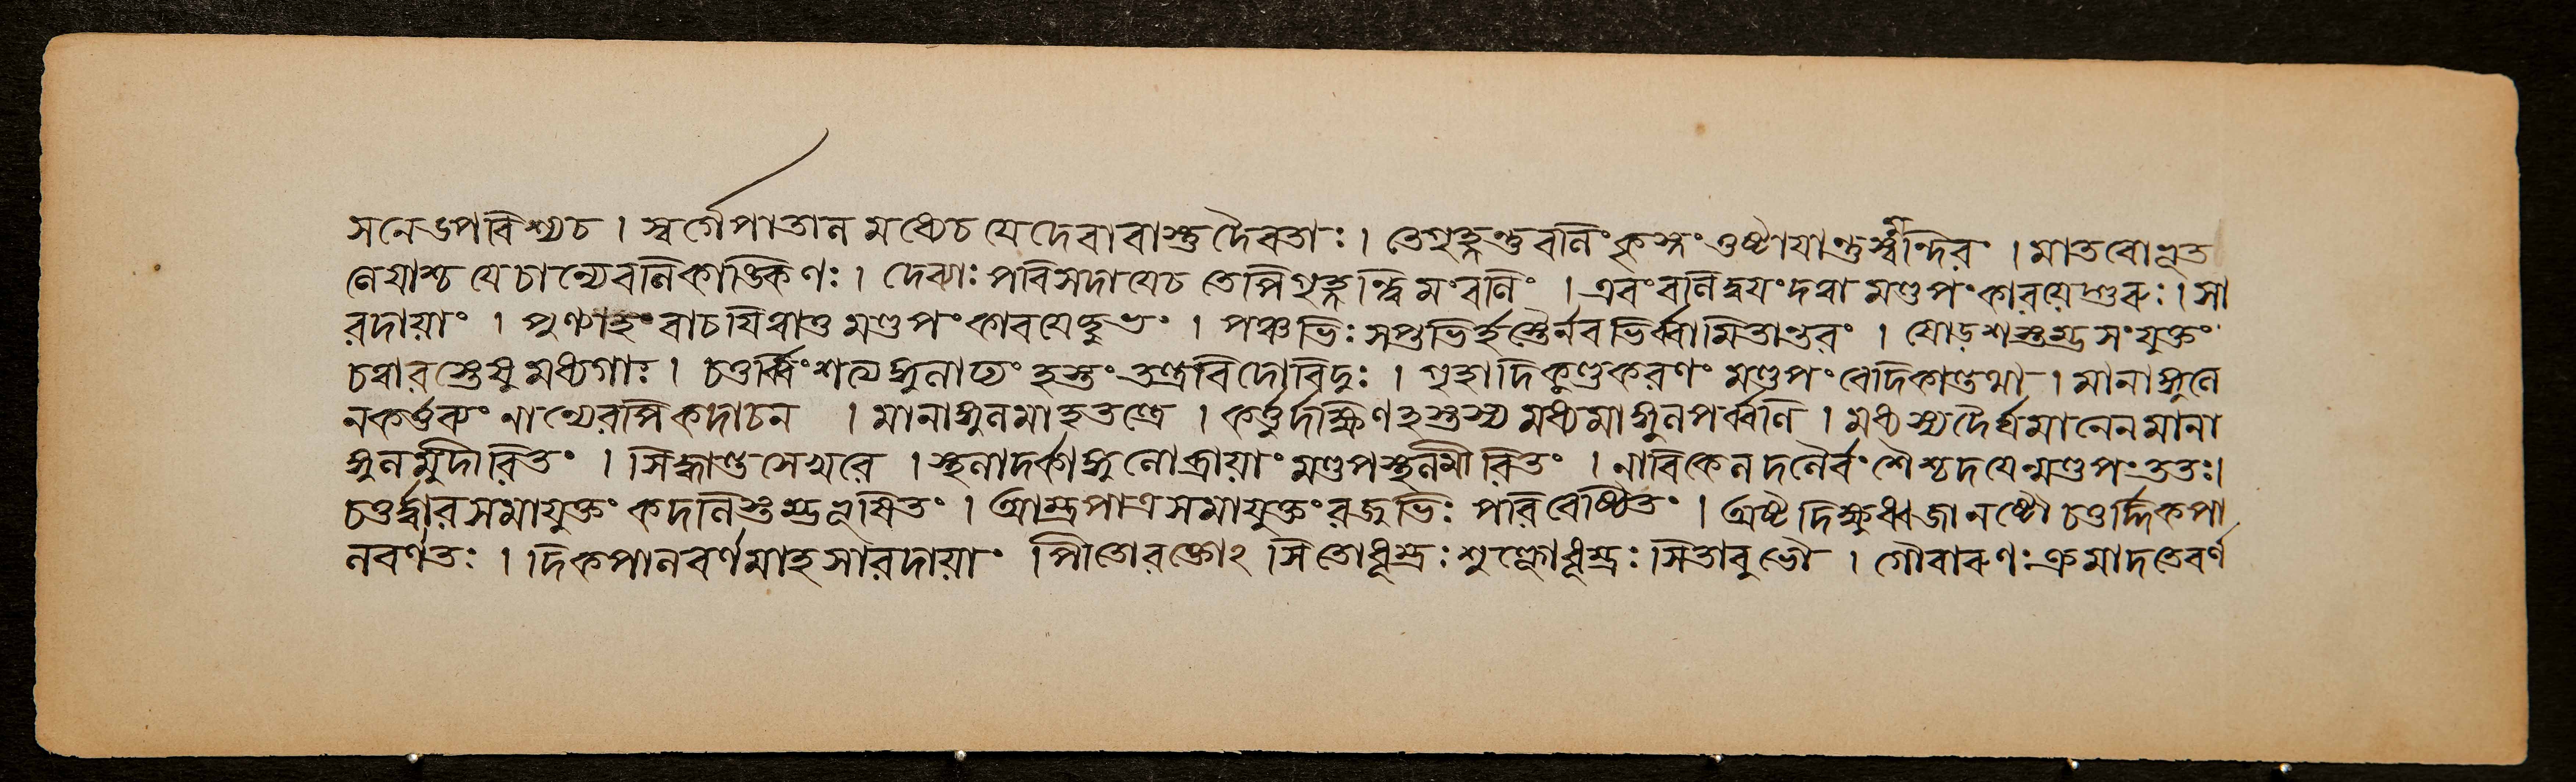 সনেউপবিশ্যচ । স্বর্গেপাতালমধ্যেচ যেদেবাবাস্তুদৈবতাঃ । তেগৃহ্ণন্তুবলিংকৃৎস্নংতুষ্টাযান্তুস্বমন্দিরং । মাতরোভূত
লেযাশ্চ যেচান্যেবলিকাঙ্ক্ষিণঃ । দেব্যাঃ পরিসদাযেচ তেপিগৃহ্ণন্ত্বিমংবলিং । এবংবলিদ্বযংদত্বা মণ্ডপংকারযেদ্গুরুঃ । সা
রদায়াং । পুণ্যাহংবাচযিত্বাতু মণ্ডপংকারযেচ্ছুভং । পঞ্চভিঃ সপ্তভির্হস্তৈর্নবভির্ব্বামিতান্তরং । ষোড়শস্তম্ভসংযুক্তং
চত্বারস্তেষুমধ্যগাঃ । চতুর্ব্বিংশত্যঙ্গুলাঢ্যং হস্তংতন্ত্রবিদোবিদুঃ । গৃহাদিকুণ্ডকরণং মণ্ডপংবেদিকান্তথা । মানাঙ্গুলে
নকর্তব্যং নান্যেরপিকদাচন । মানাঙ্গুলমাহতন্ত্রে । কর্তুর্দক্ষিণহস্তস্য মধ্যমাঙ্গুলপর্ব্বণি । মধ্যস্যদৈর্ঘমানেনমানা
ঙ্গুলমুদীরিতং । সিদ্ধান্তসেখরে । স্থূলাদর্কাঙ্গুলোচ্ছ্রায়াং মণ্ডপস্থলমীরিতং । নারিকেলদলৈর্বংশৈশ্ছদযেন্মণ্ডপংততঃ।
চতুর্দ্বারসমাযুক্তং কদলিস্তম্ভভূষিতং । আম্রপাত্রসমাযুক্তংরজ্জুভিঃ পরিবেষ্টিতং । অষ্টদিক্ষুধ্বজানষ্টৌ চতুর্দ্দিকপা
লবর্ণতঃ । দিকপালবর্ণমাহসারদায়াং । পীতোরক্তোঽসিতোধূম্রঃ শুক্লোধূম্রঃ সিতাবুভৌ । গৌরারুণঃ ক্রমাদতেবর্ণ